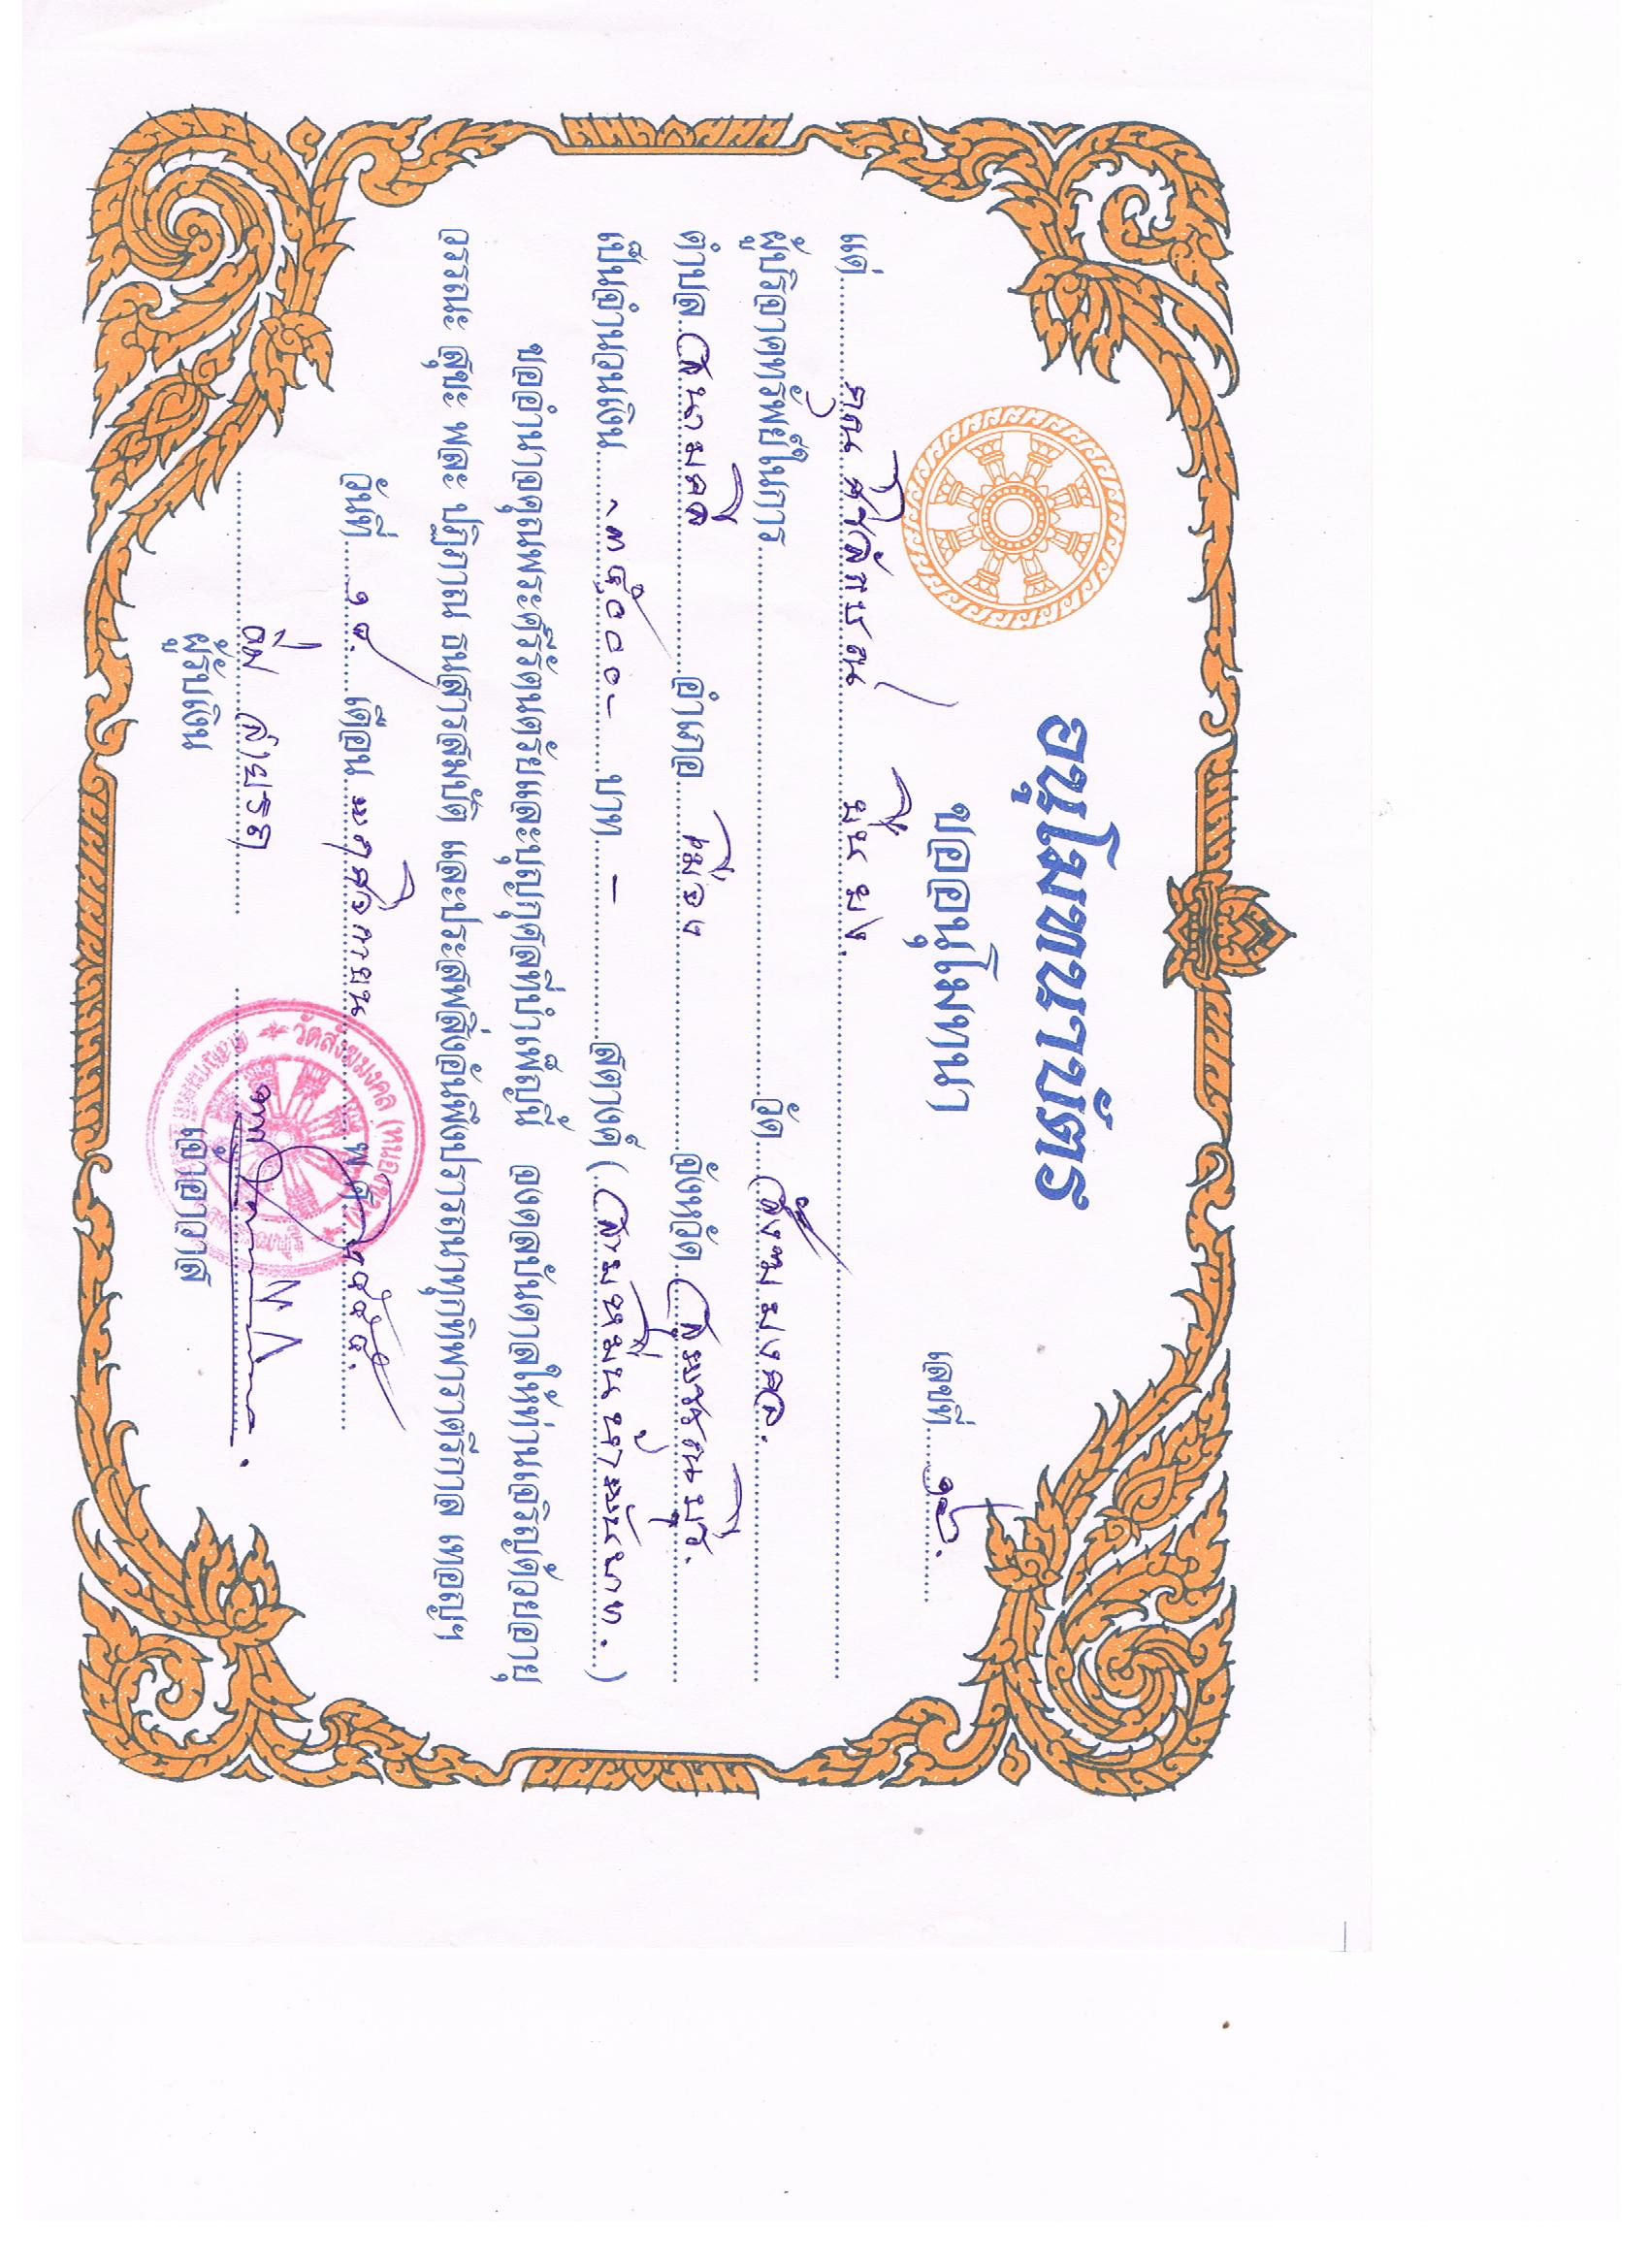 อนุโมทนาบัตร
เลขที่
ขออนุโมทนา
แด่ คุณ ศิริลักษณ์ มั่นมง.
ผู้บริจาคทรัพย์ในการ วัด สังฆมงคล.
ตำบล อำเภอ เมือง จังหวัด
เป็นจำนวนเงิน ๓๕๐๐๐- บาท - สตางค์ (สามหมื่นห้าพันบาท.)
ขออำนาจคุณพระศรีรัตนตรัยและบุญกุศลที่บำเพ็ญนี้ จงดลบันดาลให้ท่านเจริญด้วยอายุ
วรรณะ สุขะ พละ ปฏิภาณ ธนสารสมบัติ และประสพสิ่งอันพึงปรารถนาทุกทิพาราตรีกาล เทอญฯ
วันที่ เดือน พฤศจิกายน พ.ศ.
ผู้รับเงิน เจ้าอาวาส
วัดสังฆมงคล